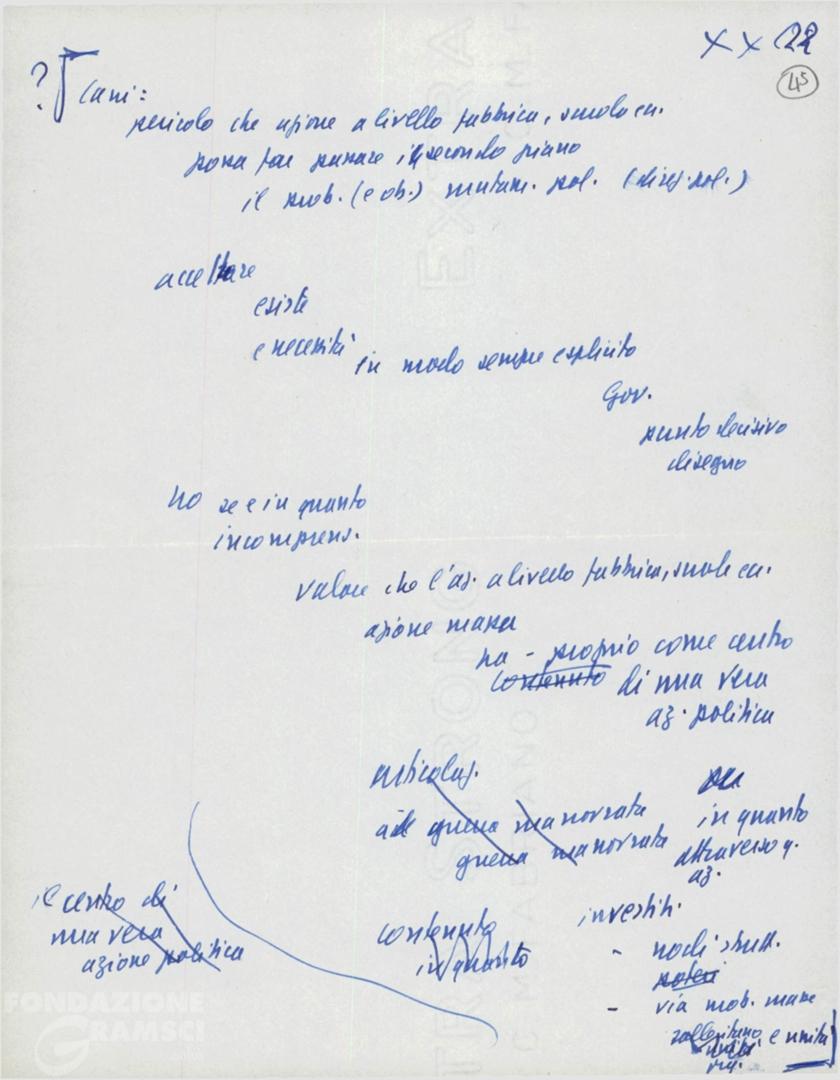 XX 22
45
? Cani:
pericolo che azione a livello fabbrica, scuola ecc.
possa far passare in secondo piano
il prob. (e ob.) mutam. pol. (direz. pol.)
accettare
esiste
e necessità in modo sempre esplicito
Gov.
punto decisivo
disegno
no se e in quanto
incomprens.
valore che l'az. a livello fabbrica, scuole ecc.
azione massa
ha - proprio come centro
contenuto di una vera
az. politica
articolaz.
guerra manovrata in quanto
guerra manovrata attraverso q.
az.
il centro di
una vera
azione politica
contenuto
in quanto
investiti
- nodi strutt.
poteri
- via mob. masse
e unità
FONDAZIONE
GRAMSCI
EXTRA